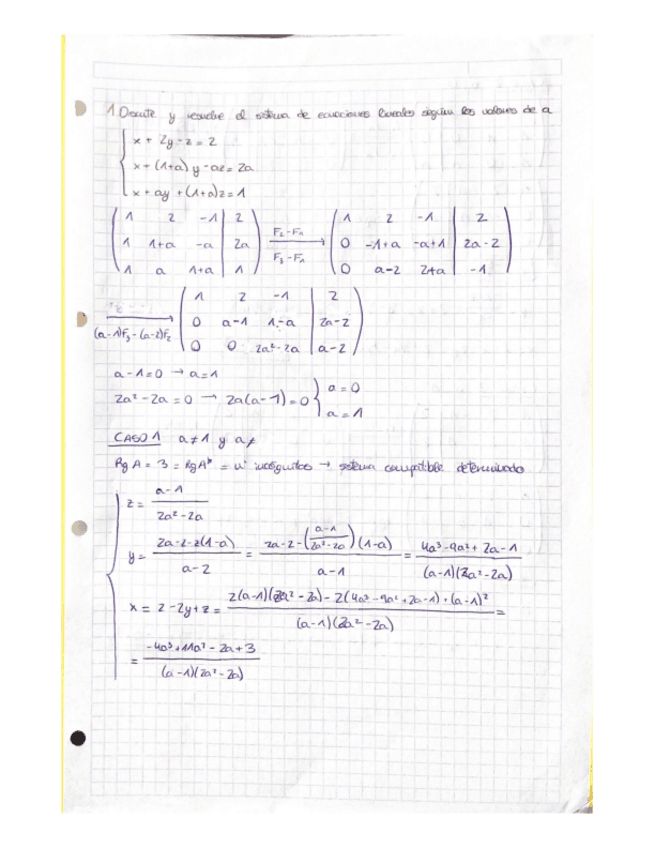 1. Discute y resuelve el sistema de ecuaciones lineales según los valores de a
x + 2y - z = 2
x + (1+a)y - az = 2a
x + ay + (1+a)z = 1
( 1 2 -1 | 2 ) F₂-F₁ ( 1 2 -1 | 2 )
( 1 1+a -a | 2a ) → ( 0 -1+a -a+1 | 2a-2 )
( 1 a 1+a | 1 ) F₃-F₁ ( 0 a-2 2+a | -1 )
→ ( 1 2 -1 | 2 )
(a-1)F₃-(a-2)F₂ ( 0 a-1 1-a | 2a-2 )
( 0 0 2a²-2a | a-2 )
a-1=0 → a=1
2a²-2a=0 → 2a(a-1)=0 } a=0
a=1
CASO 1 a≠1 y a≠
Rg A = 3 = Rg A* = nº incógnitas → sistema compatible determinado
z = (a-1)/(2a²-2a)
y = (2a-2-z(1-a))/(a-2) = (2a-2-((a-1)/(2a²-2a))(1-a))/(a-1) = (4a³-9a²+2a-1)/((a-1)(2a²-2a))
x = 2-2y+z = (2(a-1)(2a²-2a)-2(4a³-9a²+2a-1)+(a-1)²)/((a-1)(2a²-2a)) =
= (-4a³+11a²-2a+3)/((a-1)(2a²-2a))